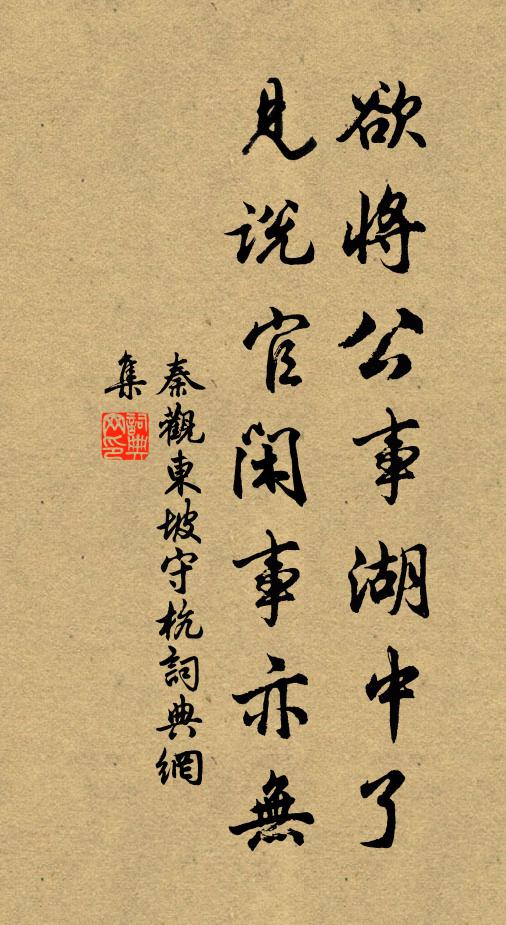 欲將公事湖中了
見說官閑事亦無
秦觀東坡守杭詞典網
集
詞典網印